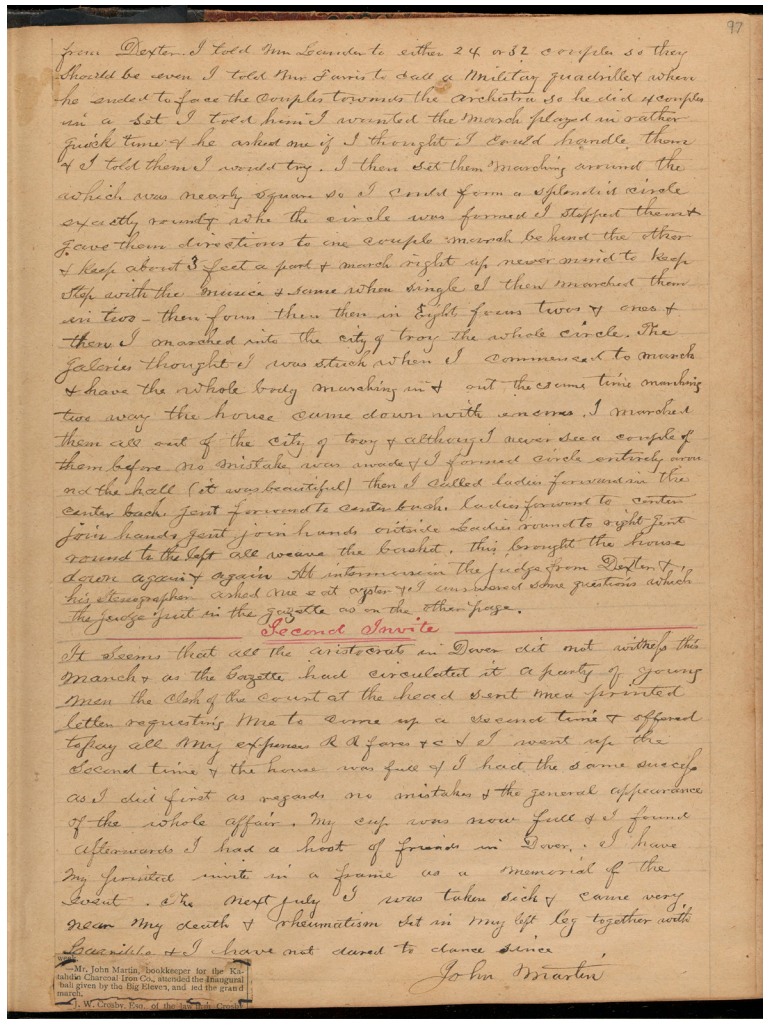 97
from Dexter. I told Mr Leander to either 24 or 32 couples so they
should be even I told Mr Farris to call a Military quadrille & when
he ended to face the couples towards the orchestra so he did 4 couples
in a set I told him I wanted the March played in rather
quick time & he asked me if I thought I could handle them
& I told them I would try. I then set them marching around the
which was nearly square so I could form a splendid circle
exactly round & whe the circle was formed I stopped them &
gave them directions to one couple march behind the other
& keep about 3 feet a part & march right up never mind to keep
step with the musice & same when single I then marched them
in two - then four then then in Eight fours twos & ones &
then I marched into the city of troy the whole circle. The
galeries thought I was stuck when I commenced to march
& have the whole body marching in & out the same time marching
two way the house came down with encores. I marched
them all out of the city of troy & althoug I never see a couple of
them before no mistake was made & I formed circle entirely arou
nd the hall (it was beautiful) then I called ladies forward in the
center back. Gent forward to center back. ladies forward to center
join hands gent join hands outside Ladies round to right Gent
round to the left all weave the basket. this brought the house
down again & again At intermission the judge from Dexter &
his stenographer asked me eat oyster & I answered some questions which
the judge put in the gazette as on the other page.
Second Invite
It seems that all the aristocrats in Dover dit not witness this
March & as the Gazette had circulated it a party of young
men the clerk of the court at the head sent me a printed
letter requesting me to come up a second time & offered
to pay all my expenses R R fares & c & I went up the
second time & the house was full & I had the same success
as I did first as regards no mistakes & the general appearance
of the whole affair. My cup was now full & I found
afterwards I had a host of friends in Dover. I have
my printed invite in a frame as a memorial of the
event. The next july I was taken sick & came very
near my death & rheumatism set in my left leg together with
& I have not dared to dance since
John Martin
week.
—Mr. John Martin, bookkeeper for the Ka-
tahdin Charcoal Iron Co., attended the Inaugural
ball given by the Big Eleven, and led the grand
march.
—J. W. Crosby, Esq. of the law firm Crosby